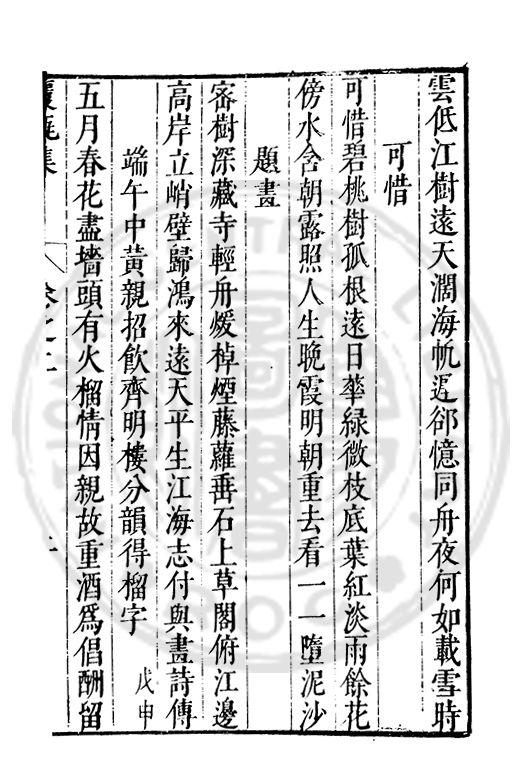 雲低江樹遠天濶海帆遲郤憶同舟夜何如載雪時
可惜
可惜碧桃樹孤根遠日華緑微枝底葉紅淡雨餘花
傍水含朝露照人生晚霞明朝重去看一一墮泥沙
題畫
密樹深藏寺輕舟煖棹煙藤蘿垂石上草閣俯江邊
高岸立峭壁歸鴻來遠天平生江海志付與畫詩傳
端午中黃親招飲齊明樓分韻得榴字 戊申
五月春花盡墻頭有火榴情因親故重酒爲倡酬留